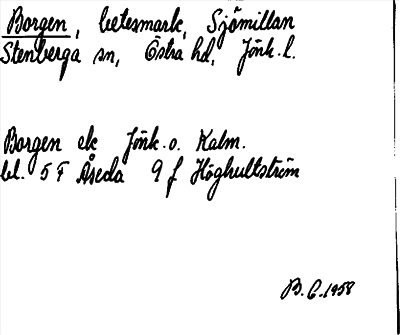 Borgen, betesmark, Sjömillan
Stenberga sn, Östra hd, Jönk.l.
Borgen ek Jönk.o. Kalm.
bl. 5 F Åseda 9 f Höghultström
B.G.1958